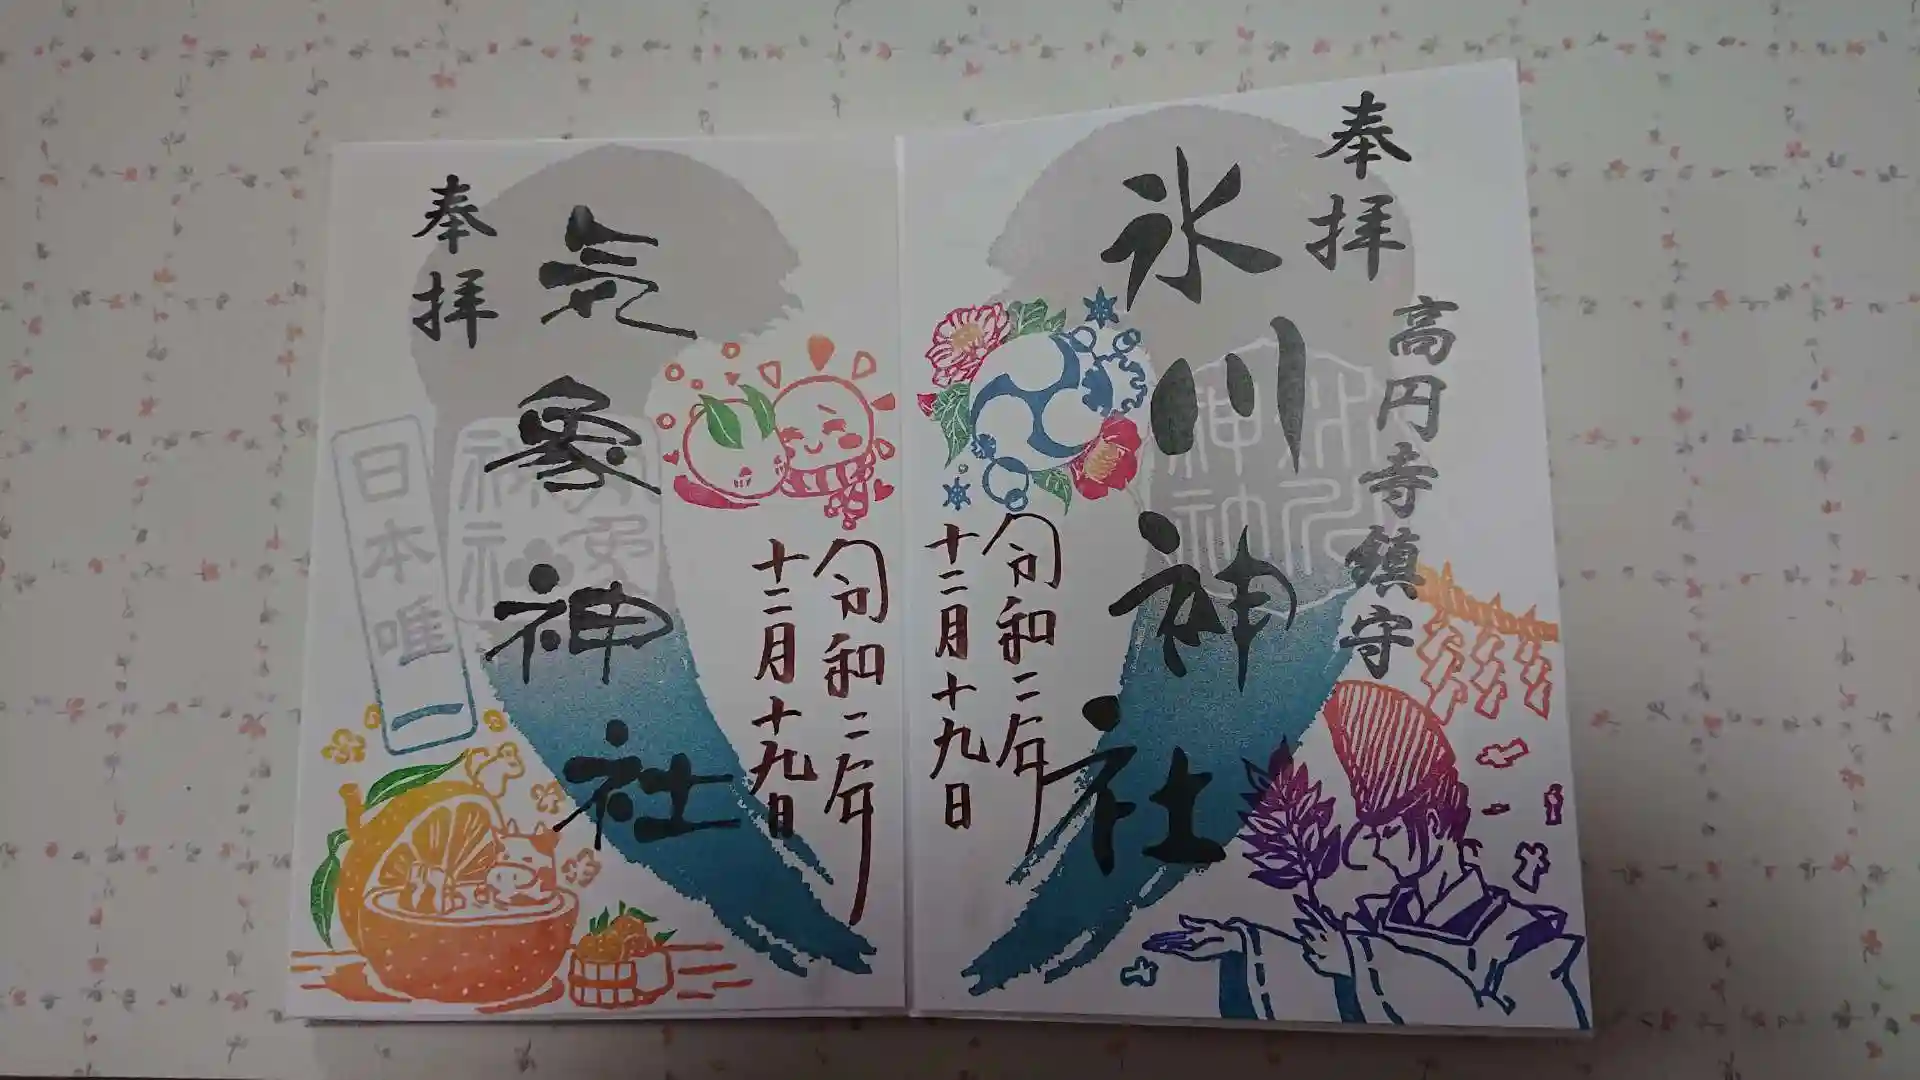 奉拝
高円寺鎮守
氷川神社
令和二年
十二月十九日
令和二年
十二月十九日
氣象神社
奉拝
日本唯一